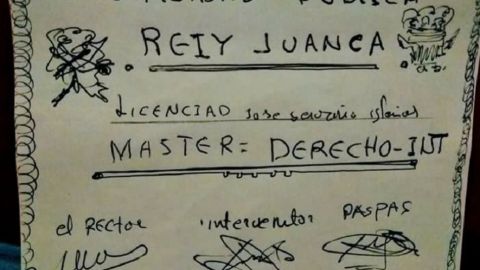 REIY JUANCA
LICENCIAD jose
MASTER= DERECHO-INT
el RECTOR interventor PASPAS